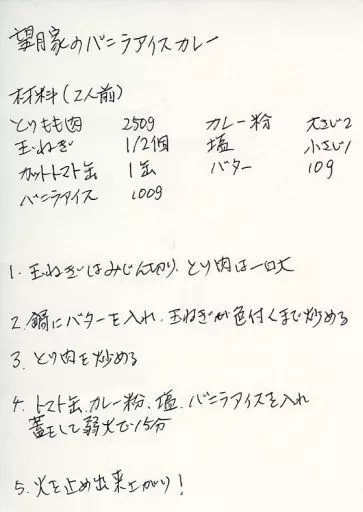 望月家のバニラアイスカレー
材料(2人前)
とりもも肉 250g カレー粉 大さじ2
玉ねぎ 1/2個 塩 小さじ1
カットトマト缶 1缶 バター 10g
バニラアイス 100g
1. 玉ねぎはみじん切り、とり肉は一口大
2. 鍋にバターを入れ、玉ねぎが色付くまで炒める
3. とり肉を炒める
4. トマト缶、カレー粉、塩、バニラアイスを入れ
蓋をして弱火で15分
5. 火を止め出来上がり!